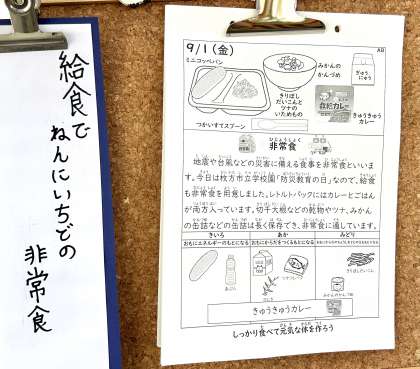 給食で
ねんにいちどの
非常食
9/1(金)
AB
ミニコッペパン
みかんの
かんづめ
ぎゅう
にゅう
きりぼし
だいこんと
ツナの
いためもの
きゅうきゅう
カレー
つかいすてスプーン
非常食
地震や台風などの災害に備える食事を非常食といいま
す。今日は枚方市立学校園「防災教育の日」なので、給食
も非常食を用意しました。レトルトパックにはカレーとごはん
が両方入っています。切干大根などの乾物やツナ、みかん
の缶詰などの缶詰は長く保存でき、非常食に適しています。
きいろ
あか
みどり
おもにエネルギーのもとになる
おもにからだをつくるもとになる
きりぼしだいこん
きゅうきゅうカレー
しっかり食べて元気な体を作ろう